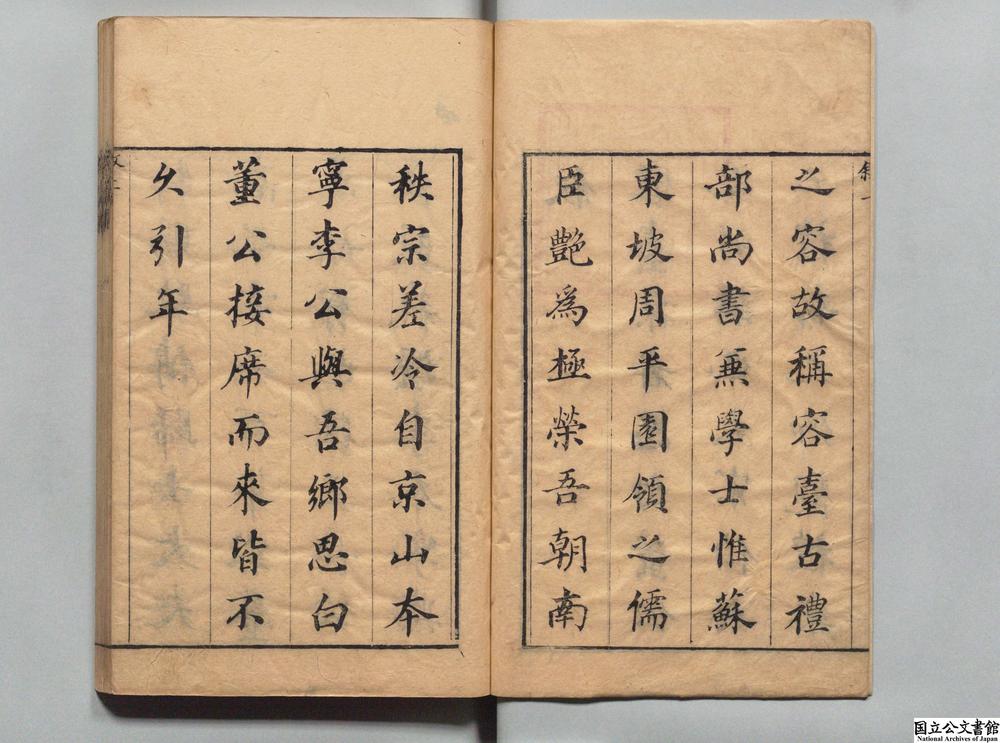 之容故稱容臺古禮
部尚書兼學士惟蘇
東坡周平園領之儒
臣艷爲極榮吾朝南
秩宗差冷自京山本
寧李公與吾鄉思白
董公接席而來皆不
久引年
国立公文書館
National Archives of Japan